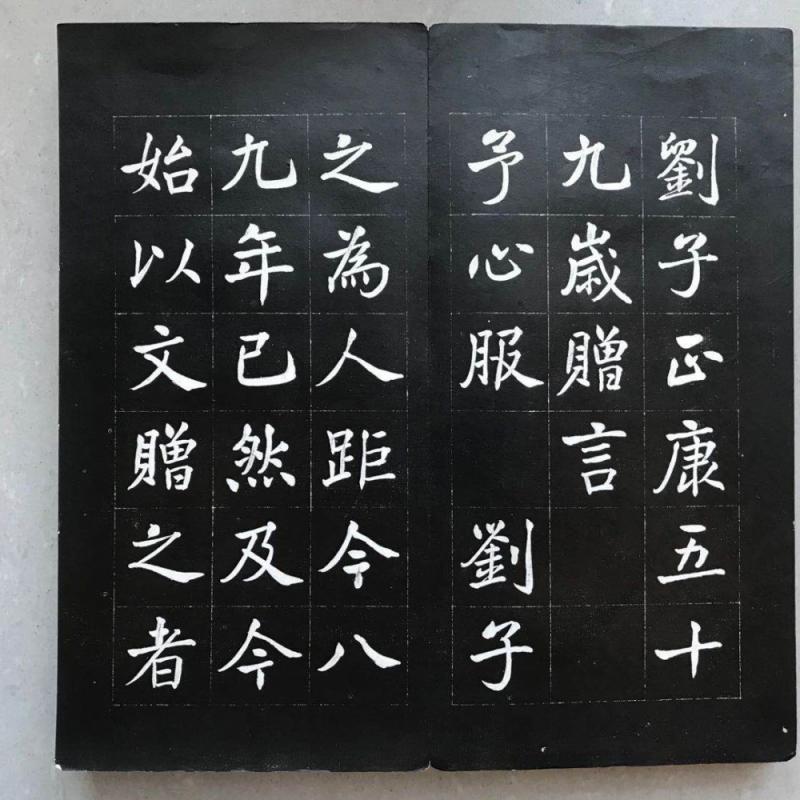 劉子正康五十
九歲贈言
予心服 劉子
之為人距今八
九年已然及今
始以文贈之者